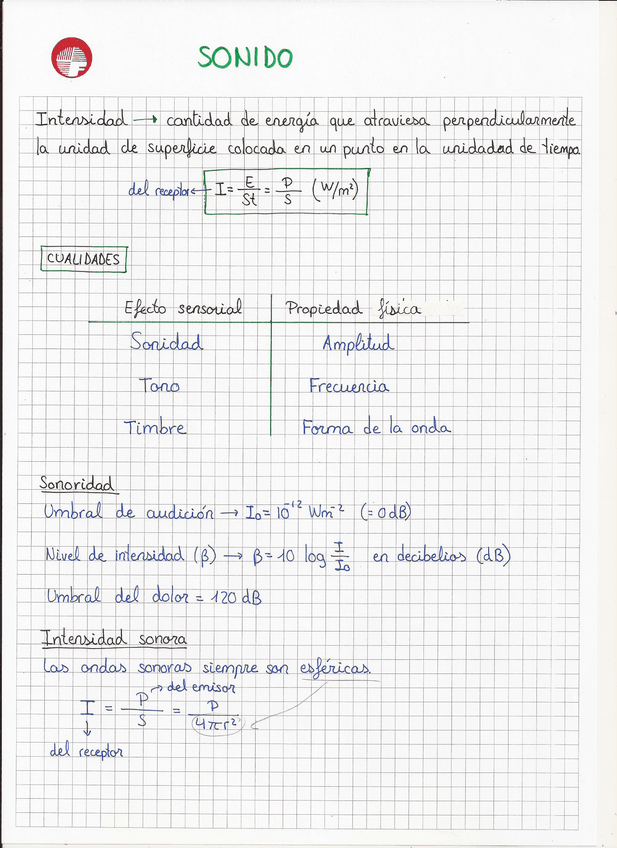 SONIDO
Intensidad → cantidad de energía que atraviesa perpendicularmente
la unidad de superficie colocada en un punto en la unidadad de tiempo.
del receptor ← I = E/St = P/S (W/m²)
CUALIDADES
Efecto sensorial Propiedad física
Sonidad Amplitud
Tono Frecuencia
Timbre Forma de la onda
Sonoridad
Umbral de audición → I₀ = 10⁻¹² Wm⁻² (= 0 dB)
Nivel de intensidad (β) → β = 10 log I/I₀ en decibelios (dB)
Umbral del dolor = 120 dB
Intensidad sonora
Las ondas sonoras siempre son esféricas.
→ del emisor
I = P/S = P/4πr²
↓
del receptor